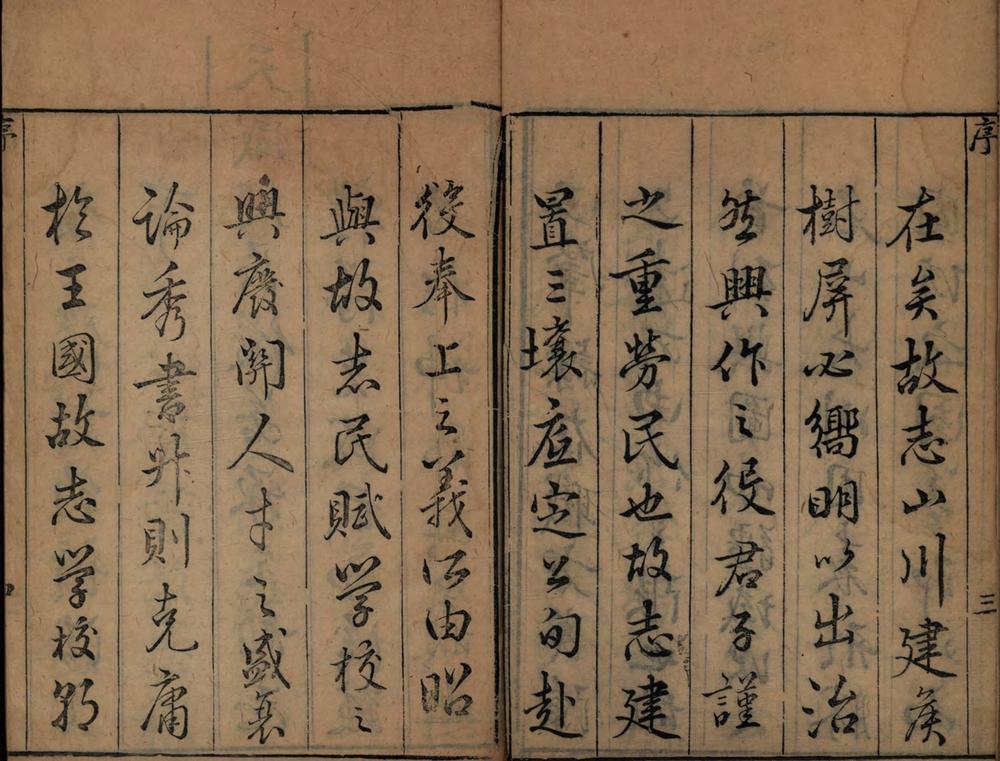 序
三
在矣故志山川建侯
樹屏必嚮明以出治
然興作之役君子謹
之重勞民也故志建
置三壤底定公旬赴
役奉上之義所由昭
與故志民賦學校之
興廢關人才之盛衰
論秀書升則克庸
於王國故志學校
序